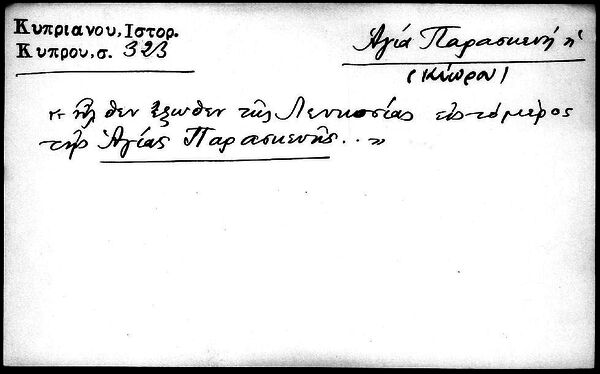 Κυπριανου, Ιστορ.
Κυπρου, σ. 323
Ἁγία Παρασκευή ἡ
(Κύπρου)
« ἦλθεν ἔξωθεν τῆς Λευκοσίας εἰς τὸ μέρος
τῆς Ἁγίας Παρασκευῆς... »